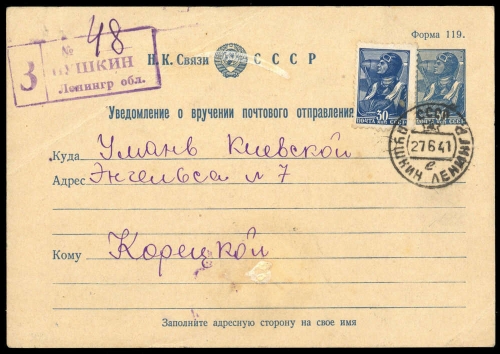 Форма 119.
№ 48
З ПУШКИН
Ленингр обл.
Н. К. Связи СССР
Уведомление о вручении почтового отправления
30
ПОЧТА СССР
ПОЧТА СССР
27 6 41
ПУШКИН ЛЕНИНГР
е
Куда Умань Киевской
Адрес Энгельса № 7
Кому Корецкой
Заполните адресную сторону на свое имя